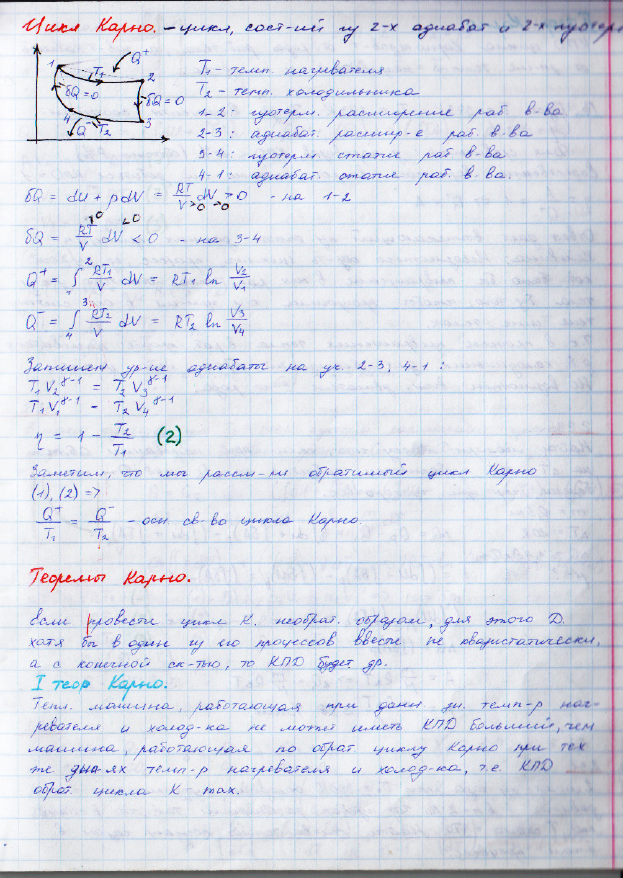 Цикл Карно. – цикл, сост-ий из 2-х адиабат и 2-х изотерм
1 T₁ Q⁺ 2
δQ = 0 δQ = 0
4 Q⁻ T₂ 3
T₁ - темп. нагревателя
T₂ - темп. холодильника
1-2 - изотерм. расширение раб. в-ва
2-3: адиабат. расшир-е раб. в-ва
3-4: изотерм. сжатие раб. в-ва
4-1: адиабат. сжатие раб. в-ва.
δQ = dU + pdV = RT/V dV > 0 - на 1-2
>0 >0
>0 <0
δQ = RT/V dV < 0 - на 3-4
Q⁺ = ∫₁² RT₁/V dV = RT₁ ln V₂/V₁
Q⁻ = ∫₄³ RT₂/V dV = RT₂ ln V₃/V₄
Запишем ур-ие адиабаты на уч. 2-3, 4-1:
T₁V₂^γ-1 = T₂V₃^γ-1
T₁V₁^γ-1 = T₂V₄^γ-1
η = 1 - T₂/T₁ (2)
Заметим, что мы рассм-ли обратимый цикл Карно
(1), (2) =>
Q⁺/T₁ = Q⁻/T₂ - осн. св-во цикла Карно.
Теоремы Карно.
Если провести цикл К. необрат. образом, для этого D.
хотя бы в один из его процессов ввести не квазистатически,
а с конечной ск-тью, то КПД будет др.
I теор Карно.
Тепл. машина, работающая при данн зн. темп-р наг-
ревателя и холод-ка не может иметь КПД больший, чем
машина, работающая по обрат. циклу Карно при тех
же знач-ях темп-р нагревателя и холод-ка, т.е. КПД
обрат. цикла К - max.